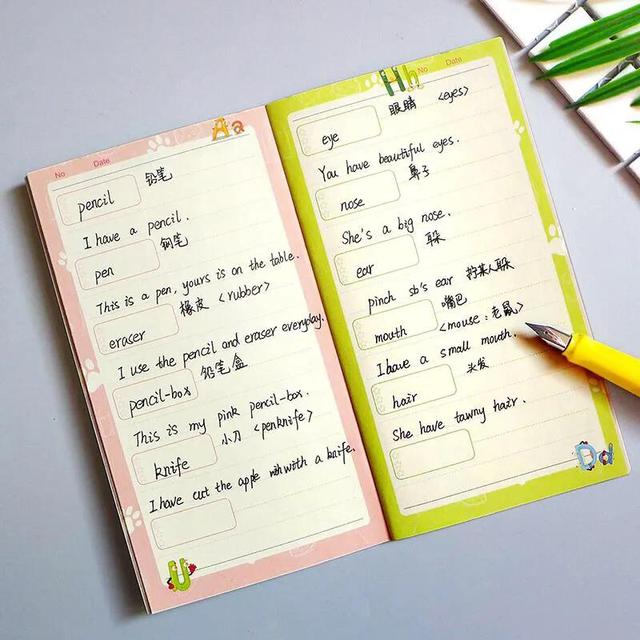 No Date Aa
pencil 铅笔
I have a pencil.
pen 钢笔
This is a pen, yours is on the table.
eraser 橡皮 <rubber>
I use the pencil and eraser everyday.
pencil-box 铅笔盒
This is my pink pencil-box.
knife 小刀 <penknife>
I have cut the apple with a knife.
U
Hh No Date
eye 眼睛 <eyes>
You have beautiful eyes.
nose 鼻子
She's a big nose.
ear 耳朵
pinch sb's ear 拧某人耳朵
mouth 嘴巴 <mouse:老鼠>
I have a small mouth.
hair 头发
She have tawny hair.
Dd